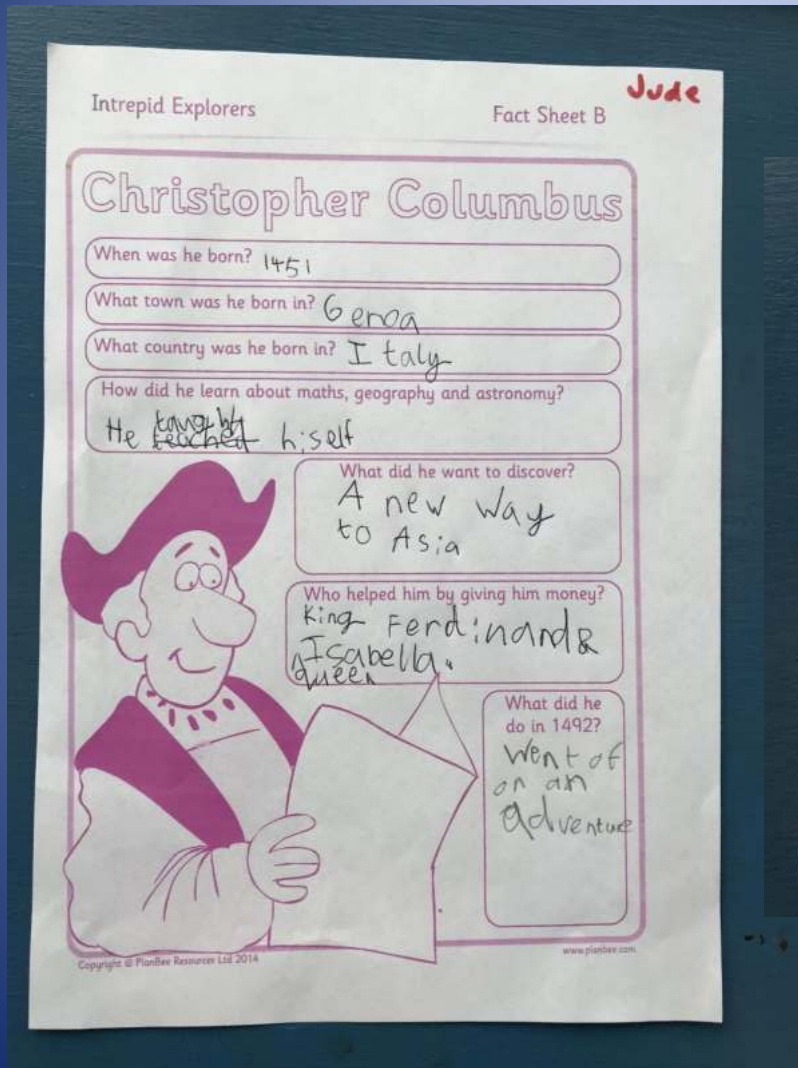 Jude
Intrepid Explorers Fact Sheet B
Christopher Columbus
When was he born? 1451
What town was he born in? Genoa
What country was he born in? Italy
How did he learn about maths, geography and astronomy?
taught
He teached hiself
What did he want to discover?
A new way
to Asia
Who helped him by giving him money?
King Ferdinand &
Isabella.
queen
What did he
do in 1492?
Went of
on an
adventure
Copyright © PlanBee Resources Ltd 2014 www.planbee.com